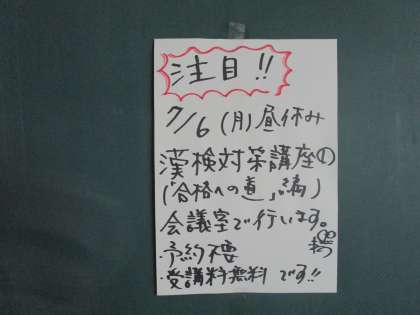 注目!!
7/6(月)昼休み
漢検対策講座の
(「合格への道」編)
会議室で行います。
・予約不要
・受講料無料 です!!